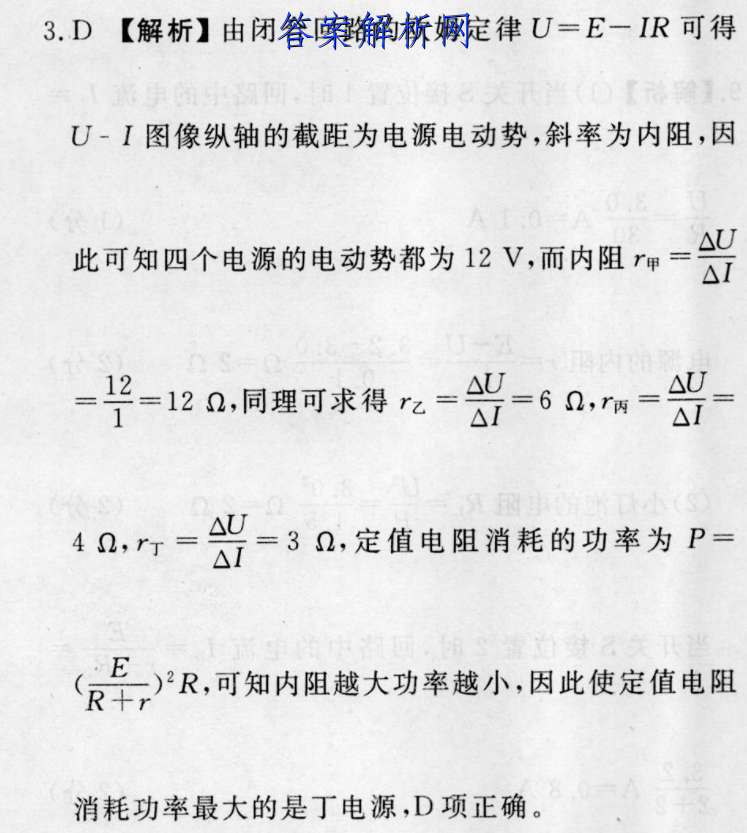 3.D 【解析】由闭合回路的欧姆定律 U=E-IR 可得
答案解析网
U-I 图像纵轴的截距为电源电动势,斜率为内阻,因
此可知四个电源的电动势都为 12 V,而内阻 r甲=ΔU/ΔI
=12/1=12 Ω,同理可求得 r乙=ΔU/ΔI=6 Ω,r丙=ΔU/ΔI=
4 Ω,r丁=ΔU/ΔI=3 Ω,定值电阻消耗的功率为 P=
(E/R+r)²R,可知内阻越大功率越小,因此使定值电阻
消耗功率最大的是丁电源,D项正确。